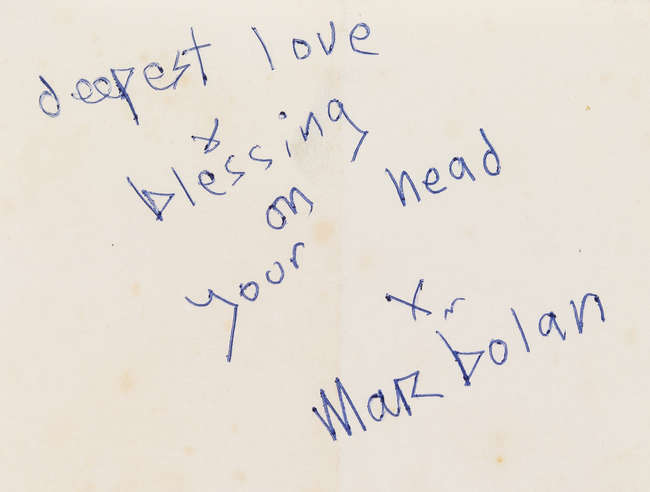 deepest love
x
blessing
on
your head
x~
Mark bolan